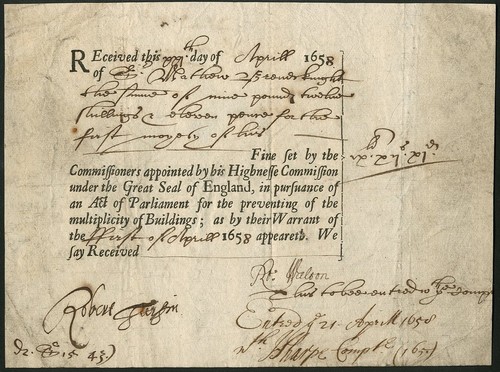 REceived this xxth day of Aprill 1658
of Sr. Mathew Brend knight
the summe of nine pounds twelve
shillings & eleven pence for the
first moyety of his
Fine set by the
Commissioners appointed by his Highnesse Commission
under the Great Seal of England, in pursuance of
an Act of Parliament for the preventing of the
multiplicity of Buildings; as by their Warrant of
the ffirst of Aprill 1658 appeareth. We
say Received
li s d
ix. xi
This to bee entred wth ye Comp
Robert
Entred ye 21. Aprill 1658
Wm Sharpe Compt.
15 43)